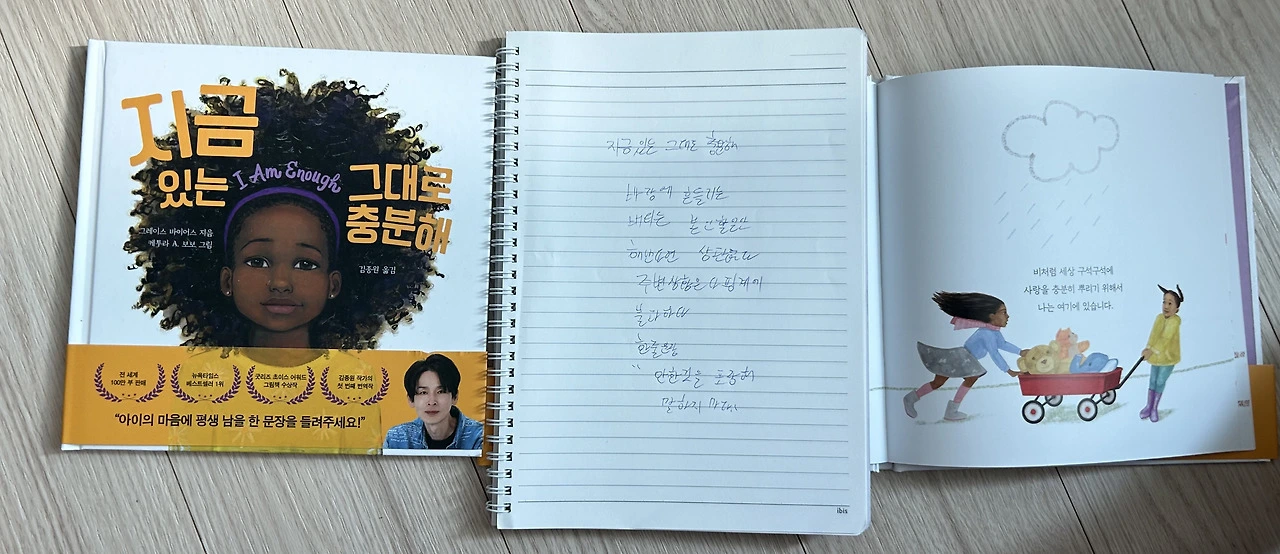 지금
있는
I Am Enough
그대로
충분해
그레이스 바이어스 지음
케투라 A. 보보 그림
김종원 옮김
전 세계
100만 부 판매
뉴욕타임스
베스트셀러 1위
굿리즈 초이스 어워드
그림책 수상작
김종원 작가의
첫 번째 번역작
“아이의 마음에 평생 남을 한 문장을 들려주세요!”
지금있는 그대로 충분해
바람에 흔들리는
주변상황은
불과하다
한줄문장
말하지 마라
ibis
비처럼 세상 구석구석에
사랑을 충분히 뿌리기 위해서
나는 여기에 있습니다.